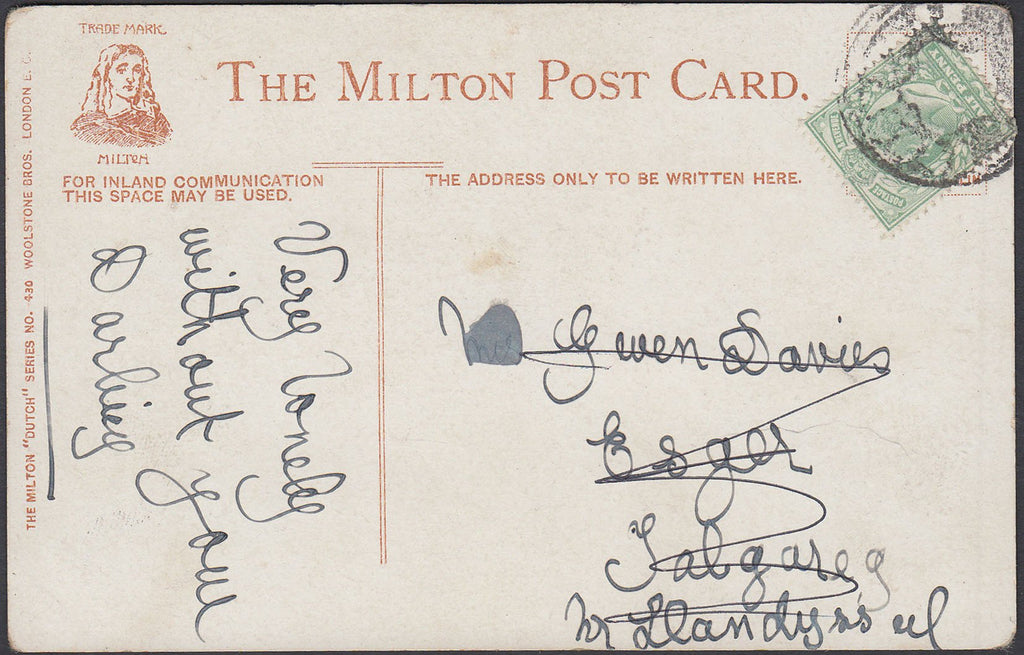 TRADE MARK
MILTON
THE MILTON POST CARD.
FOR INLAND COMMUNICATION
THIS SPACE MAY BE USED.
THE ADDRESS ONLY TO BE WRITTEN HERE.
THE MILTON "DUTCH" SERIES NO. 430 WOOLSTONE BROS. LONDON E.C.
Very Lonely
without you
Darling
Gwen Davies
Esger
Talgareg
Nr Llandyssul
POSTAGE